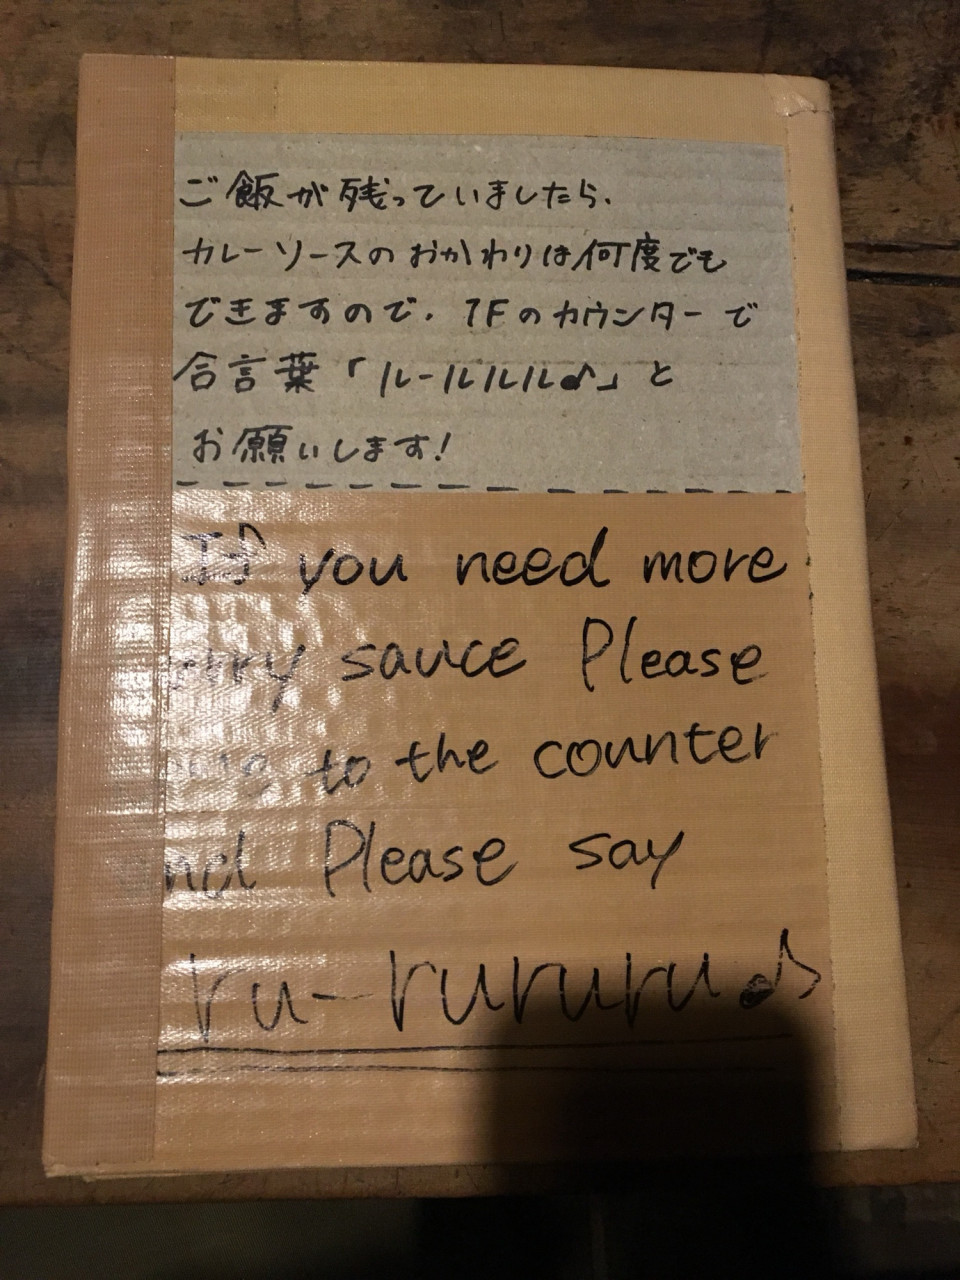 ご飯が残っていましたら、
カレーソースのおかわりは何度でも
できますので、1Fのカウンターで
合言葉「ルールルル♪」と
お願いします!
If you need more
sauce Please
to the counter
Please say
ru-rurururu♪